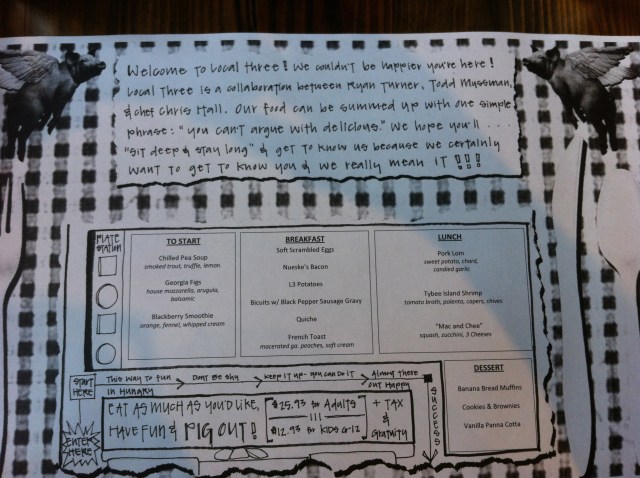 Welcome to Local Three! We couldn't be happier you're here!
Local Three is a collaboration between Ryan Turner, Todd Mussman,
& Chef Chris Hall. Our food can be summed up with one simple
phrase: "you can't argue with delicious." We hope you'll ...
"sit deep & stay long" & get to know us because we certainly
want to get to know you & we really mean it !!!
PLATE
STATION
TO START
Chilled Pea Soup
smoked trout, truffle, lemon
Georgia Figs
house mozzarella, arugula,
balsamic
Blackberry Smoothie
orange, fennel, whipped cream
BREAKFAST
Soft Scrambled Eggs
Nueske's Bacon
L3 Potatoes
Bicuits w/ Black Pepper Sausage Gravy
Quiche
French Toast
macerated ga. peaches, soft cream
LUNCH
Pork Loin
sweet potato, chard,
candied garlic
Tybee Island Shrimp
tomato broth, polenta, capers, chives
"Mac and Chee"
squash, zucchini, 3 Cheeses
DESSERT
Banana Bread Muffins
Cookies & Brownies
Vanilla Panna Cotta
START
HERE
This way to fun
Don't be shy
Keep it up - you can do it
Almost there
IN HUNGRY
OUT HAPPY
SUCCESS
ENTER
HERE
EAT AS MUCH AS YOU'D LIKE,
HAVE FUN & PIG OUT!
$25.93 for Adults
$12.93 for KIDS 6-12
+ TAX
&
Gratuity